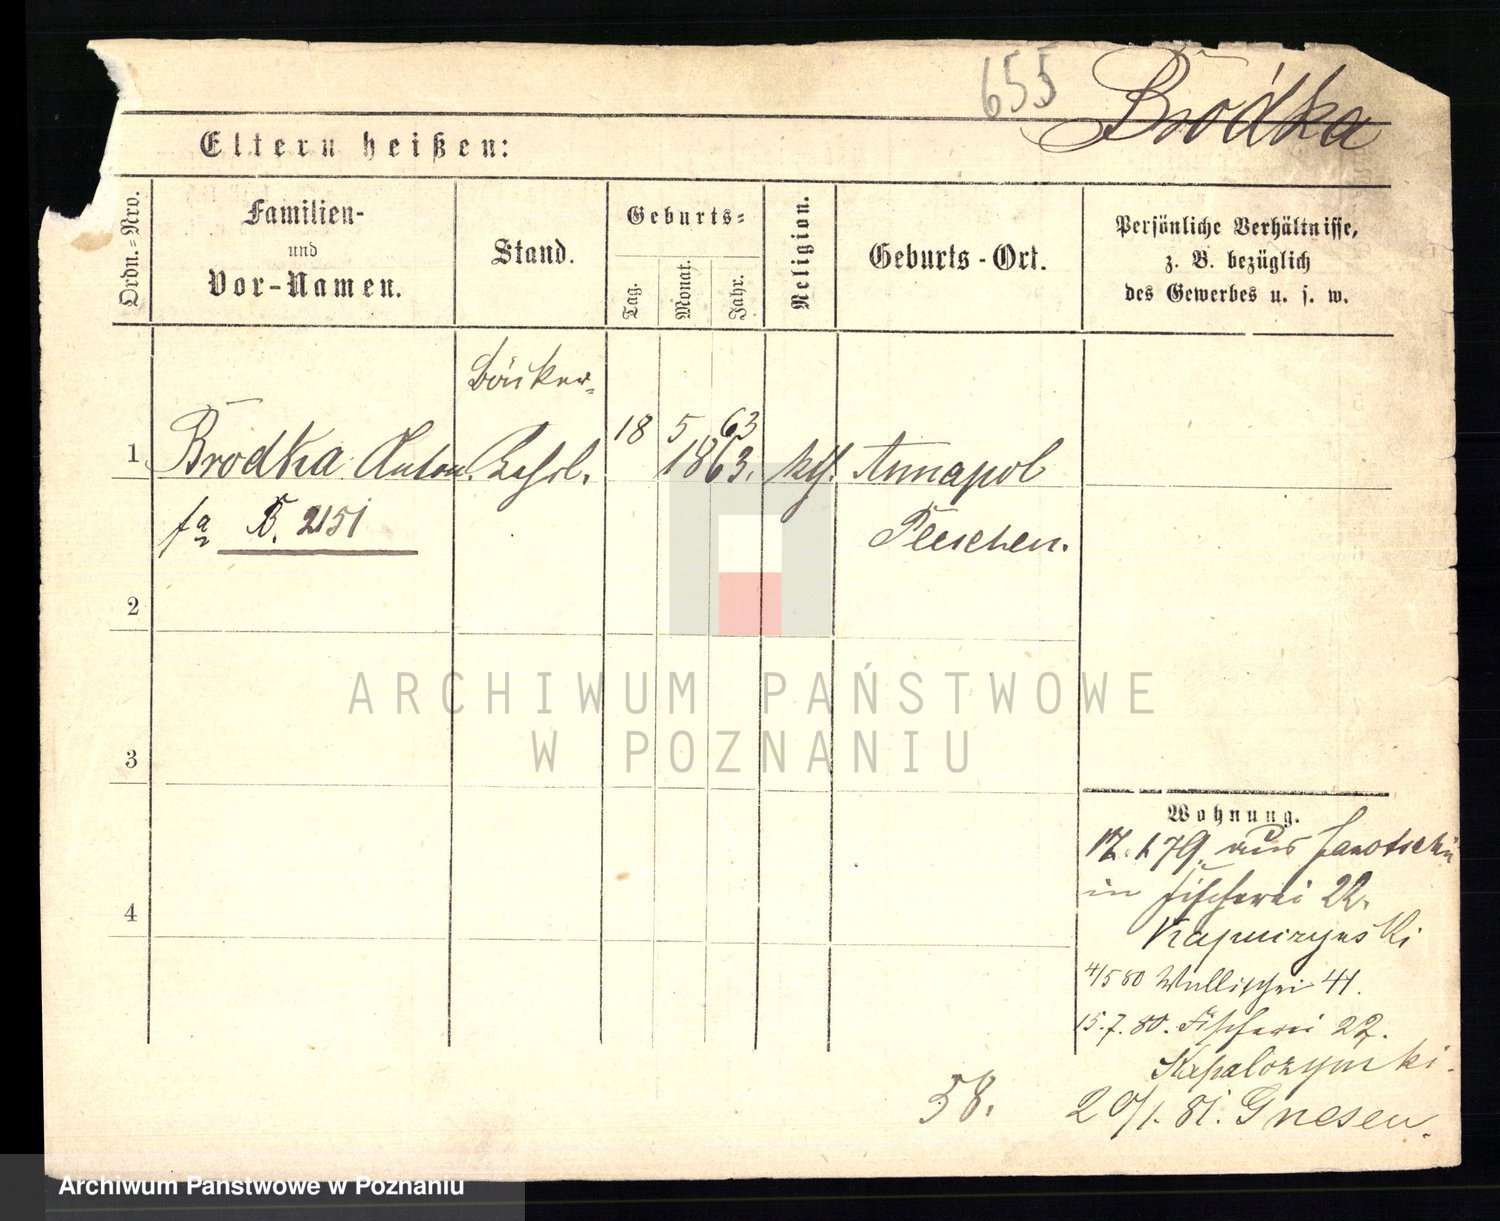 655 Bródka
Eltern heißen:
Ordn.-Nro.
Familien-
und
Vor-Namen.
Stand.
Geburts-
Tag.
Monat.
Jahr.
Religion.
Geburts-Ort.
Persönliche Verhältnisse,
z. B. bezüglich
des Gewerbes u. s. w.
Bäcker-
18 5 63
1 Brodka Anton. Lehrl. 1863. kth. Annapol
B. 2151
Pleschen.
2
3
4
Wohnung.
79. aus Jarotschin
in Fischerei 22.
4/5 80 Wallischei 41.
15.7.80. Fischerei 22.
20/1. 81. Gnesen.
58.
ARCHIWUM PAŃSTWOWE
W POZNANIU
Archiwum Państwowe w Poznaniu